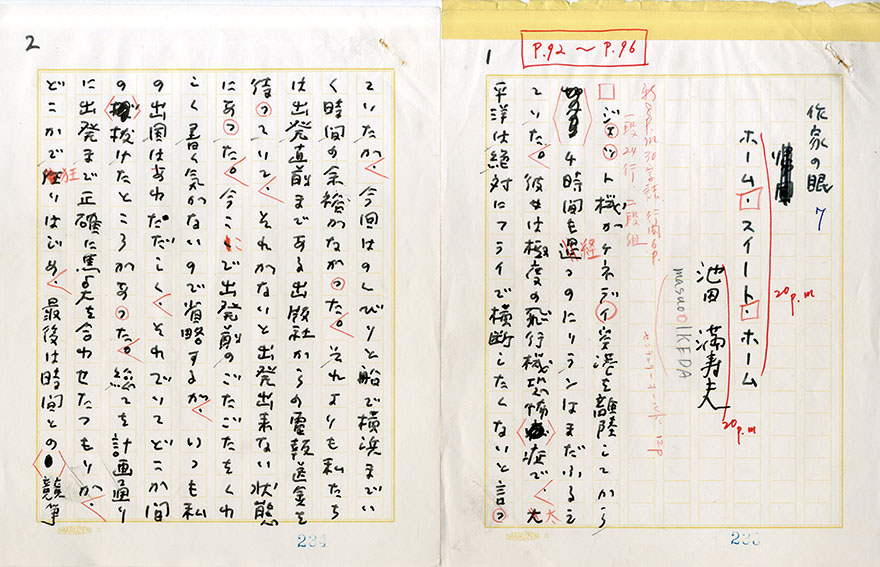 1
P.92 〜 P.96
作家の眼 7
ホーム・スイート・ホーム
20p.m
池田 満寿夫
20p.m
masao IKEDA
30字詰 行間6p.
一段24行、二段組
12p
ジェット機がケネディ空港を離陸してから
4時間も経つのにリランはまだふるえ
ていた。彼女は極度の飛行機恐怖症で、太
太
平洋は絶対にフライで横断したくないと言っ
MARUZEN
233
2
ていたが、今回はのんびりと船で横浜までい
く時間の余裕がなかった。それよりも私たち
は出発直前まである出版社からの電報送金を
待っていて、それがないと出発出来ない状態
にあった。今ここで出発前のごたごたをくわ
しく書く気がないので省略するが、いつも私
の出国はあわただしく、それでいてどこか間
の抜けたところがあった。総てを計画通り
に出発まで正確に を合わせたつもりが、
どこかで狂いはじめ、最後は時間との競争
MARUZEN
234